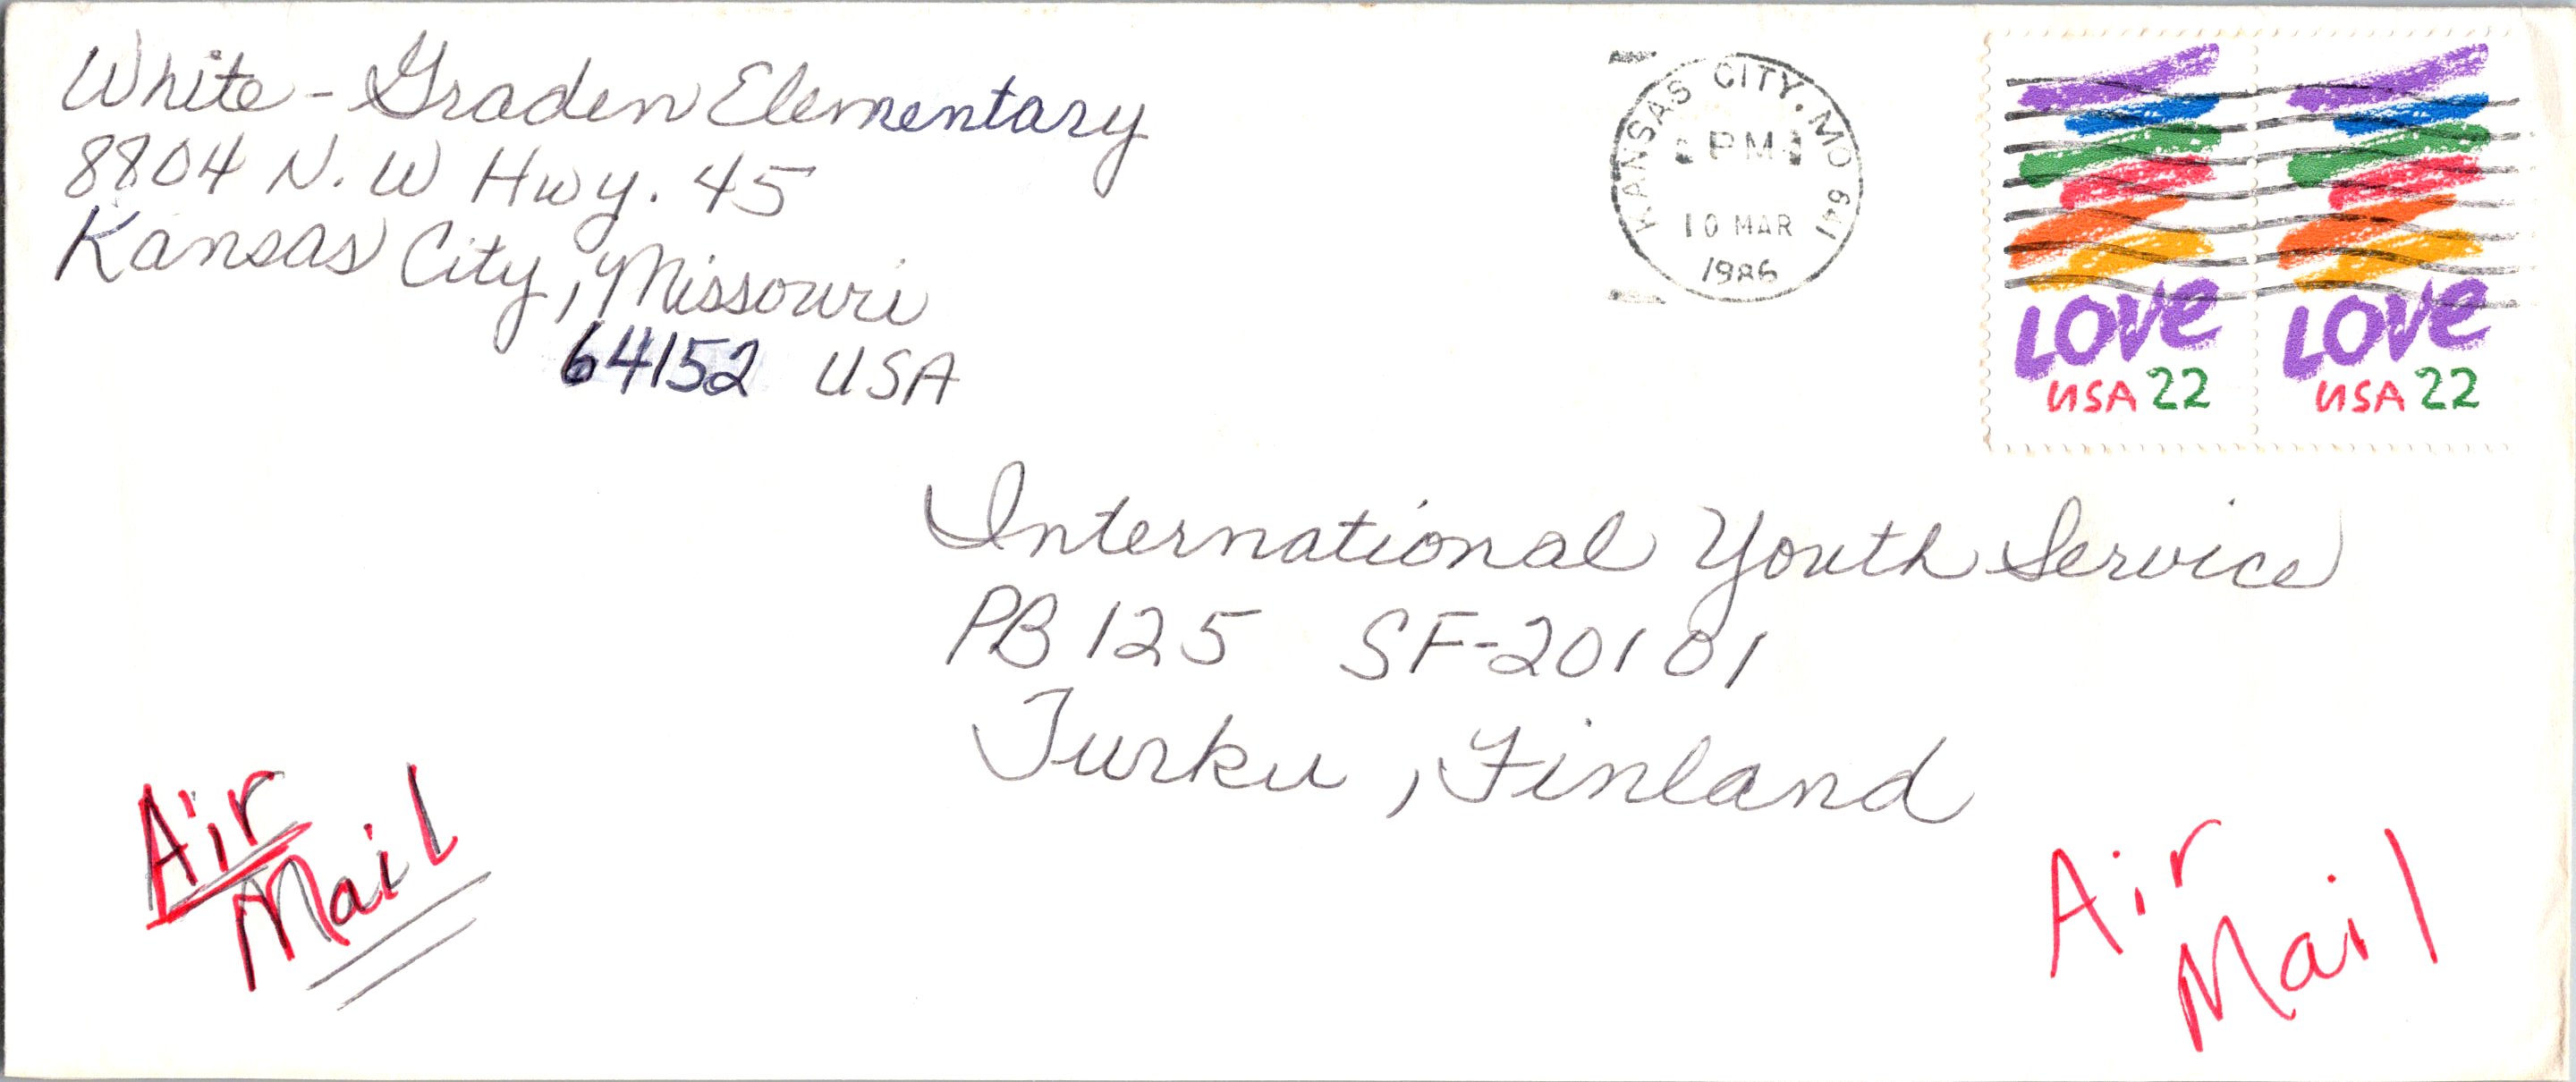 White-Graden Elementary
8804 N.W Hwy. 45
Kansas City, Missouri
64152 USA
KANSAS CITY, MO 641
PM
10 MAR
1986
LOVE
USA 22
LOVE
USA 22
International Youth Service
PB 125 SF-20101
Turku, Finland
Air
Mail
Air
Mail